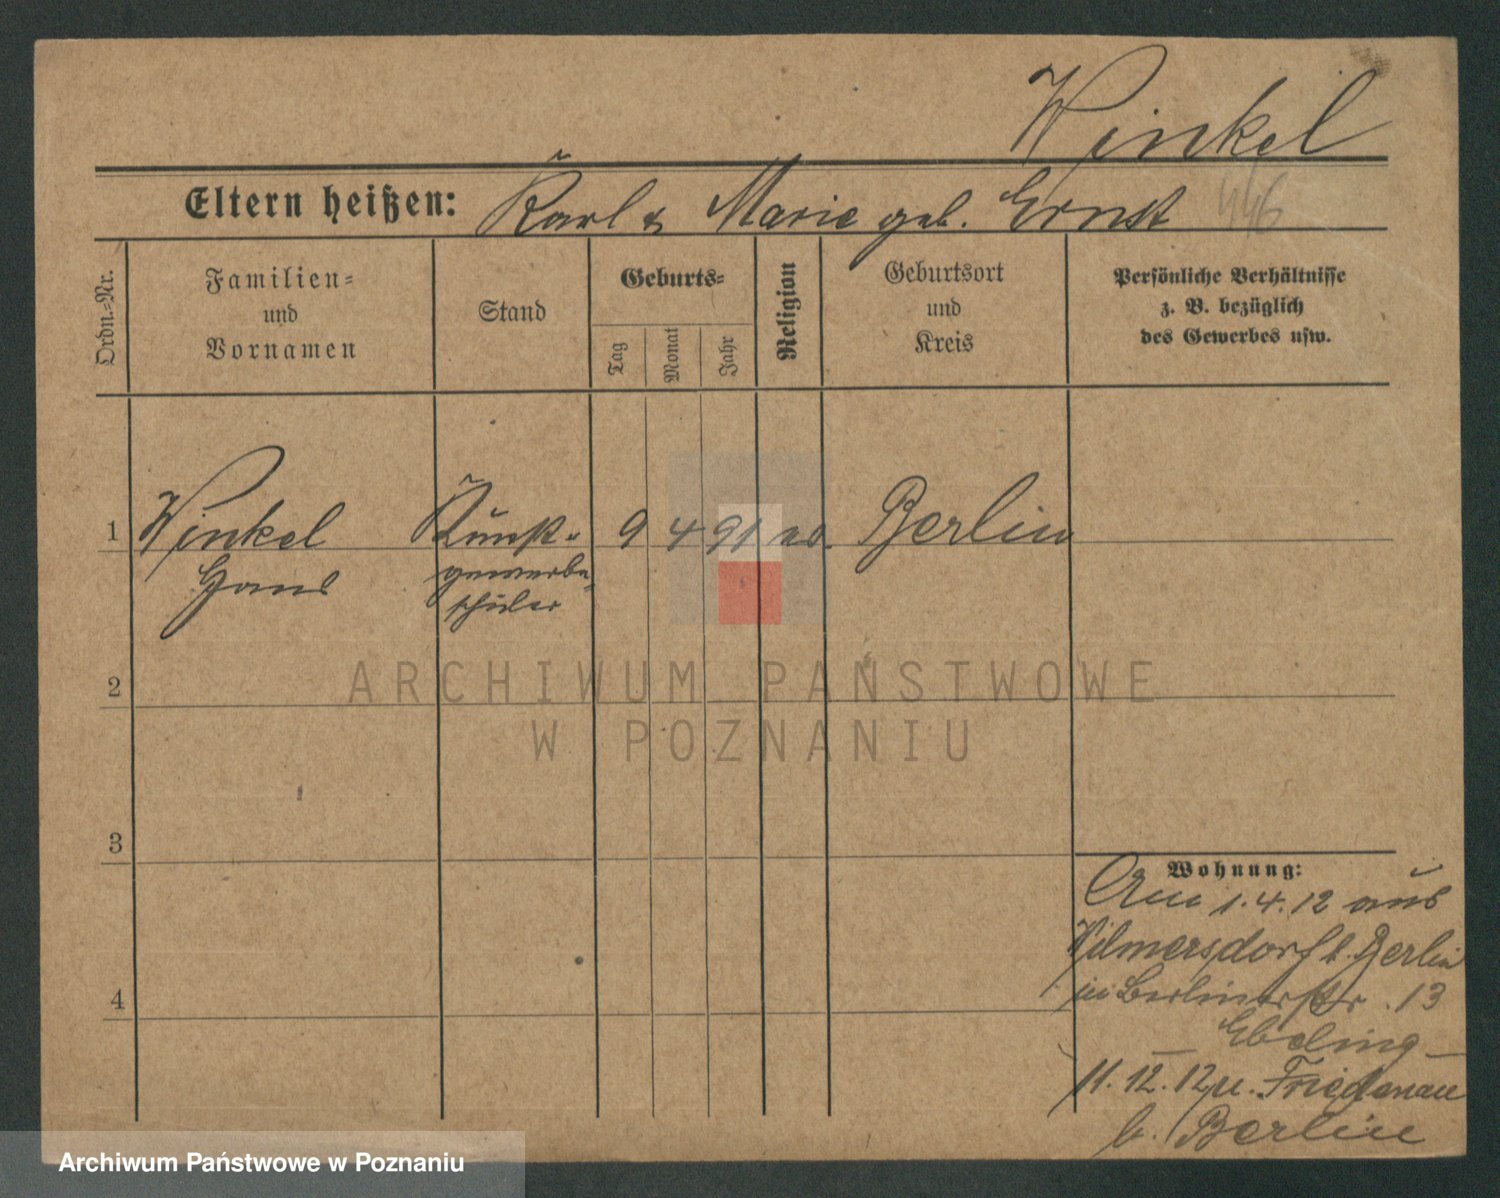 Winkel
Eltern heißen: Karl & Marie geb. Ernst 446
Ordn.-Nr.
Familien-
und
Vornamen
Stand
Geburts-
Tag
Monat
Jahr
Religion
Geburtsort
und
Kreis
Persönliche Verhältnisse
z. B. bezüglich
des Gewerbes usw.
1 Winkel Kunst- 9 4 91 ev. Berlin
Hans gewerbe-
schüler
2
ARCHIWUM PAŃSTWOWE
W POZNANIU
3
Wohnung:
Am 1.4.12 aus
Wilmersdorf b. Berlin
in Berlinerstr. 13
Ebeling
4
11.12.12 n. Friedenau
b. Berlin
Archiwum Państwowe w Poznaniu